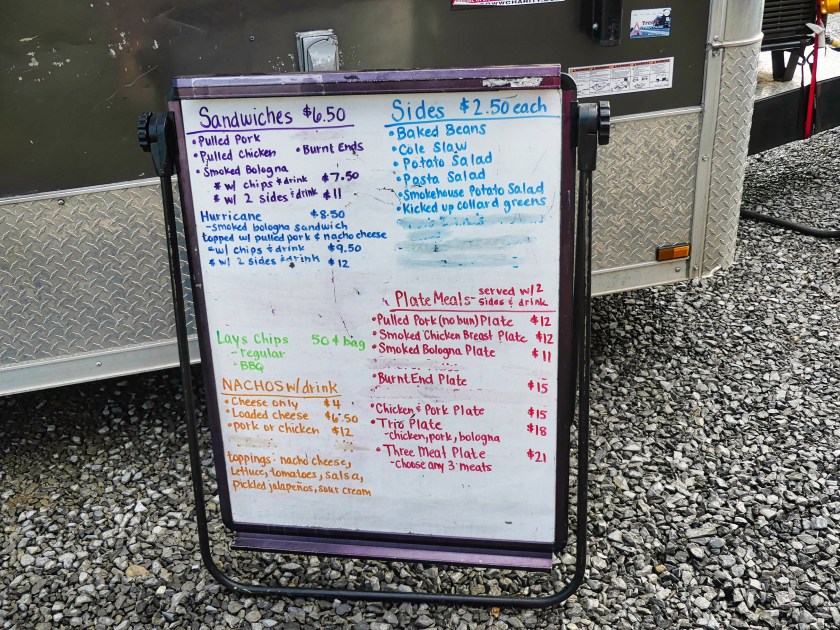 Sandwiches $6.50
• Pulled Pork
• Pulled Chicken • Burnt Ends
• Smoked Bologna
* w/ chips & drink $7.50
* w/ 2 sides & drink $11
Hurricane $8.50
- smoked bologna sandwich
topped w/ pulled pork & nacho cheese
* w/ chips & drink $9.50
* w/ 2 sides & drink $12
Lays Chips 50¢ bag
- regular
- BBQ
NACHOS w/drink
• Cheese only $4
• Loaded cheese $6.50
• pork or chicken $12
toppings: nacho cheese,
lettuce, tomatoes, salsa,
pickled jalapeños, sour cream
Sides $2.50 each
• Baked Beans
• Cole Slaw
• Potato Salad
• Pasta Salad
• Smokehouse Potato Salad
• Kicked up collard greens
Plate Meals - served w/2
sides & drink
• Pulled Pork (no bun) Plate $12
• Smoked Chicken Breast Plate $12
• Smoked Bologna Plate $11
• Burnt End Plate $15
• Chicken & Pork Plate $15
• Trio Plate $18
- chicken, pork, bologna
• Three Meat Plate $21
- Choose any 3 meats